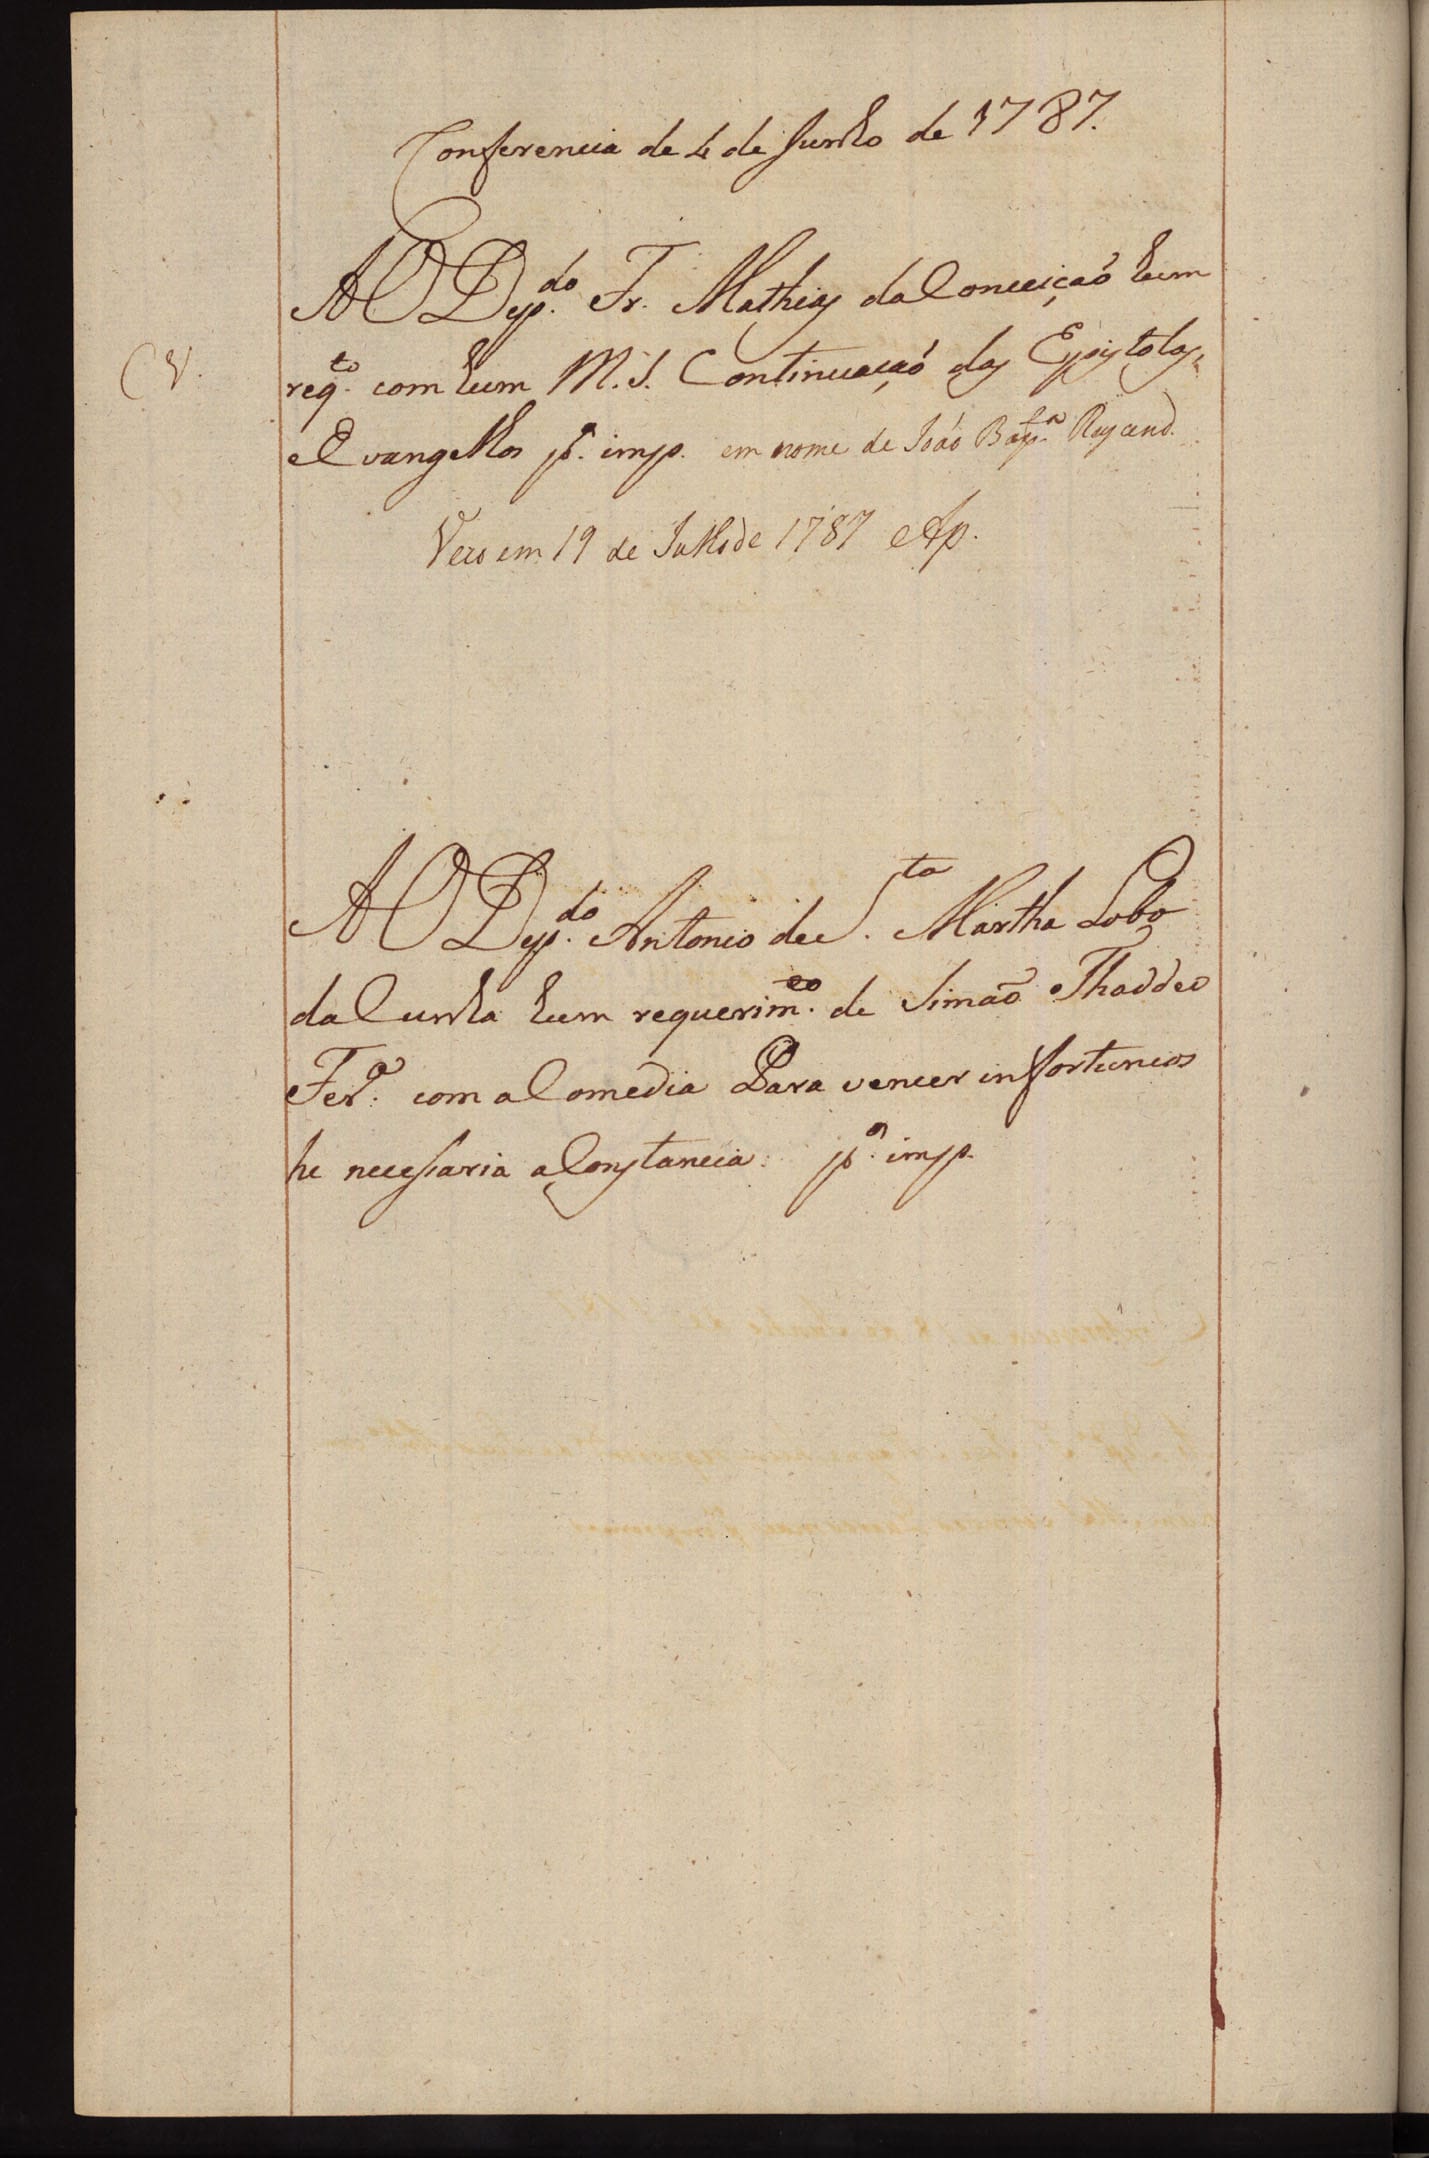 Conferencia de 4 de Junho de 1787.
AO Dep.do Fr. Mathias da Conceiçaõ hum
V. req.to com hum M. S. Continuaçaõ das Epistolas,
Evangelhos p.a imp. em nome de Joaõ Bap.ta
Veio em 19 de Julho de 1787 Ap.
AO Dep.do Antonio de S.ta Martha Lobo
da Cunha hum requerim.to de Simaõ Thaddeo
Fer.a com a Comedia Para vencer infortunios
he necessaria a Constancia. p.a imp.